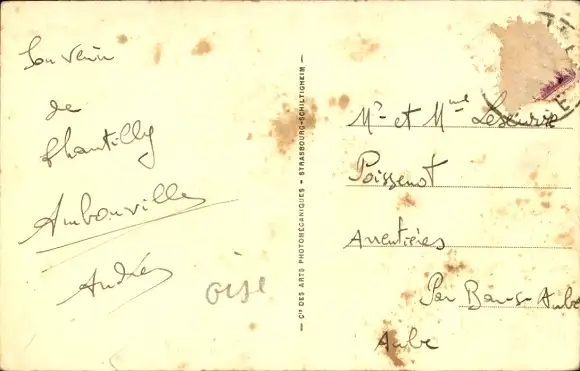 Souvenir
de
Chantilly
Ambonville
André
oise
— Cie DES ARTS PHOTOMÉCANIQUES - STRASBOURG-SCHILTIGHEIM —
Mr et Mme
Poissenot
Arrentières
Par Bar-s-Aube
Aube